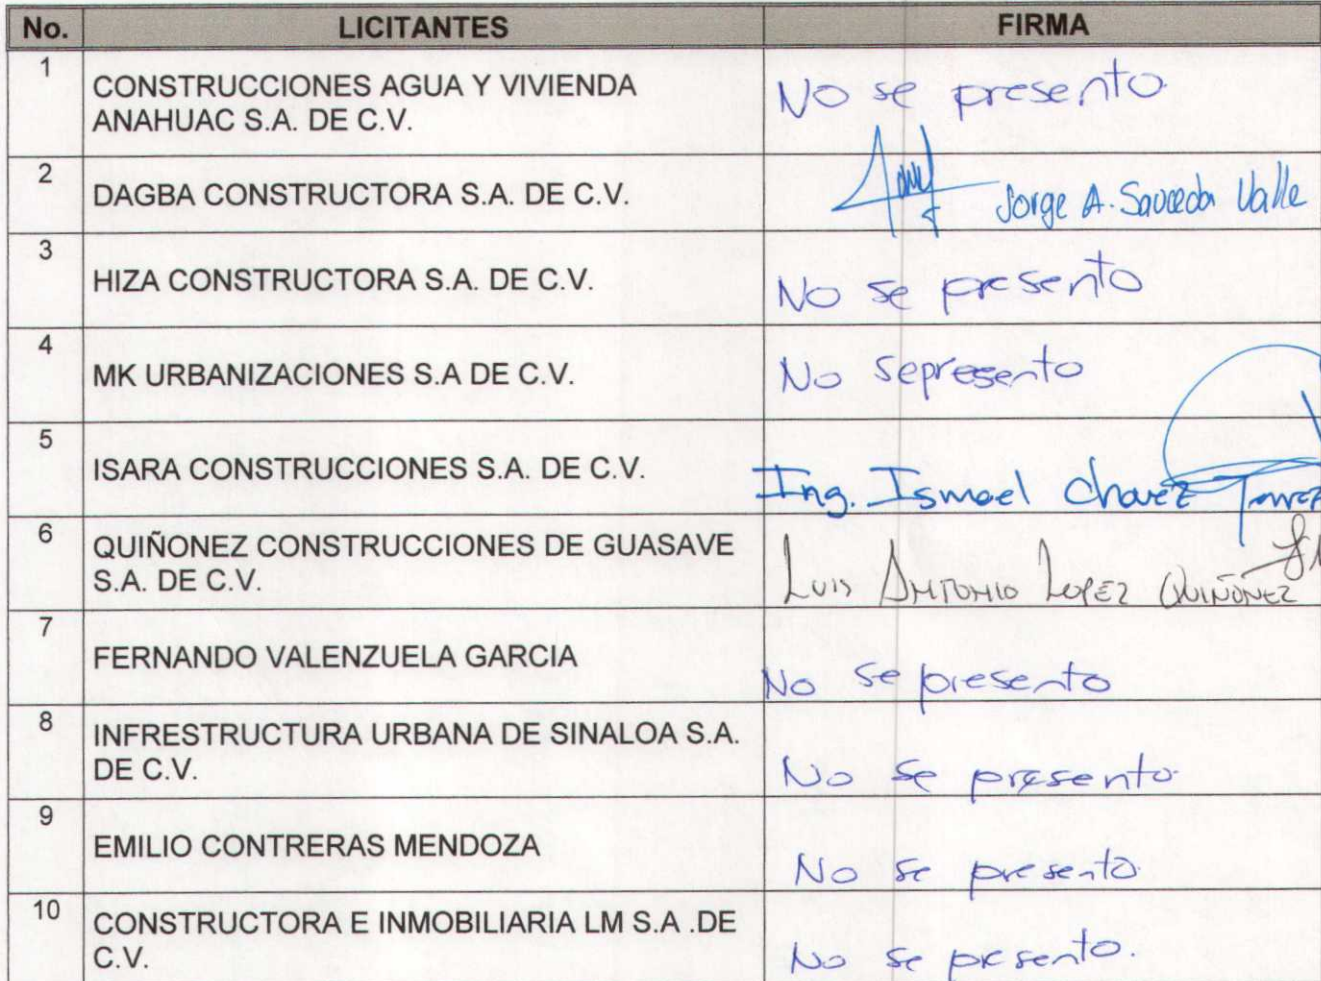 No. LICITANTES FIRMA
1 CONSTRUCCIONES AGUA Y VIVIENDA
ANAHUAC S.A. DE C.V.
No se presento
2 DAGBA CONSTRUCTORA S.A. DE C.V.
Jorge A. Sauceda Valle
3 HIZA CONSTRUCTORA S.A. DE C.V.
No se presento
4 MK URBANIZACIONES S.A DE C.V.
No se presento
5 ISARA CONSTRUCCIONES S.A. DE C.V.
Ing. Ismael Chavez
6 QUIÑONEZ CONSTRUCCIONES DE GUASAVE
S.A. DE C.V.
LUIS ANTONIO LOPEZ QUIÑONEZ
7 FERNANDO VALENZUELA GARCIA
No se presento
8 INFRESTRUCTURA URBANA DE SINALOA S.A.
DE C.V.
No se presento
9 EMILIO CONTRERAS MENDOZA
No se presento
10 CONSTRUCTORA E INMOBILIARIA LM S.A .DE
C.V.
No se presento.